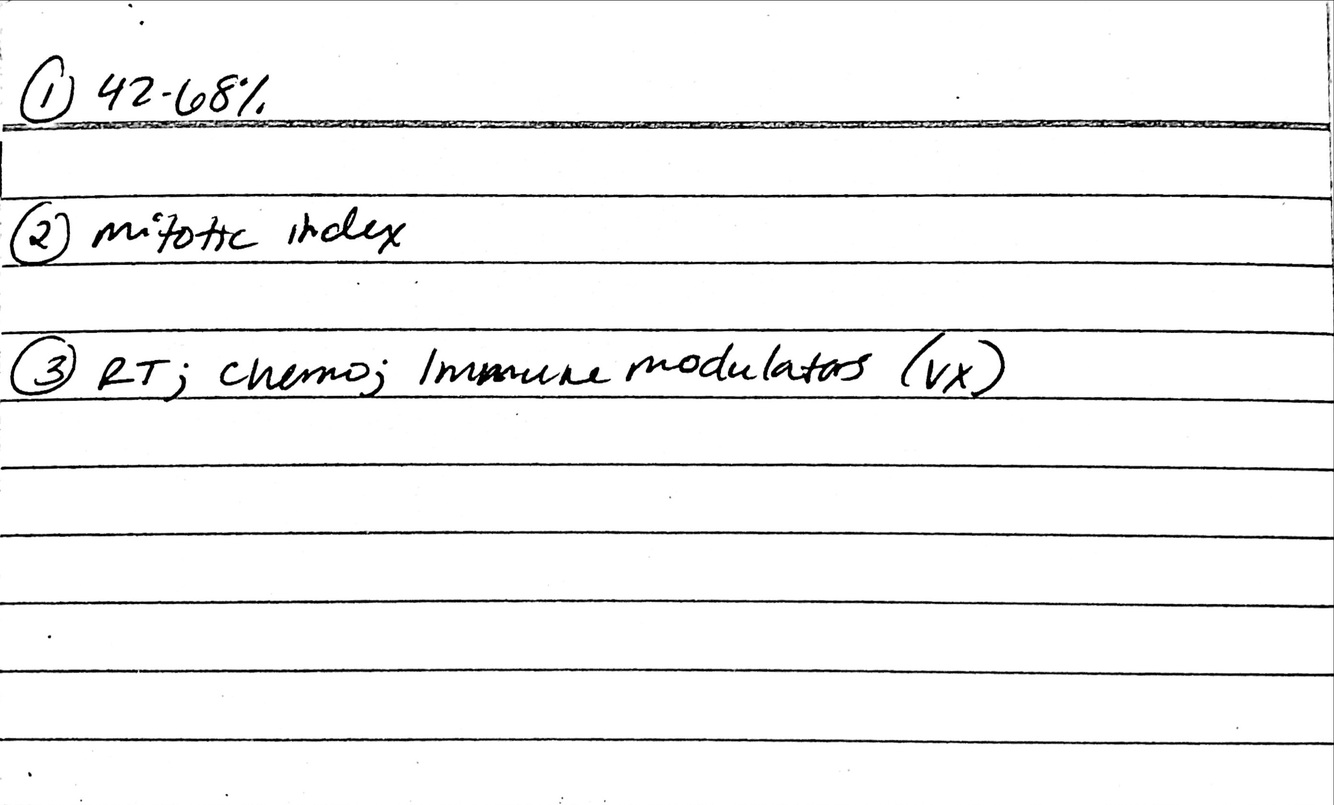 ① 42-68%
② mitotic index
③ RT; chemo; Immune modulators (VX)